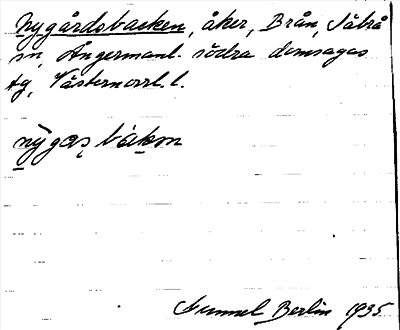 Nygårdsbacken, åker, Brån, Säbrå
sn, Ångermanl. södra domsagas
tg, Västernorrl. l.
nygas bakɘn
Gunnel Berlin 1935